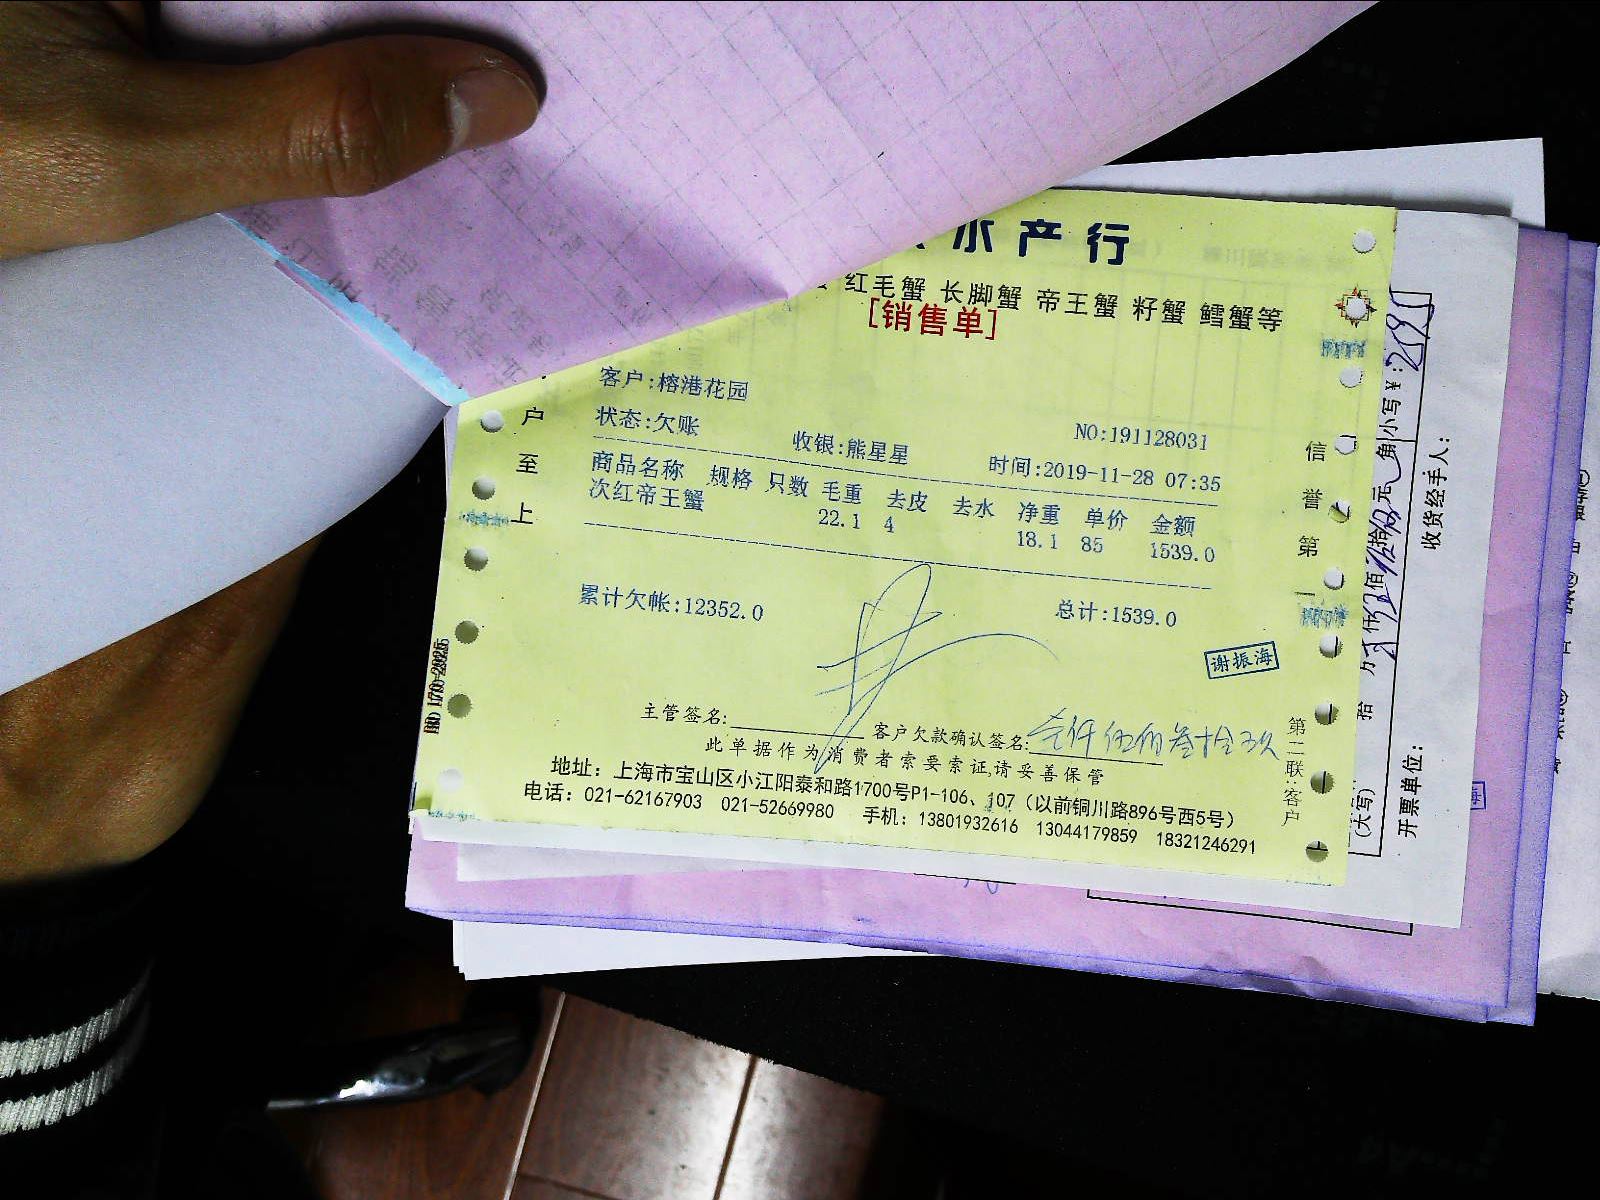 水产行
红毛蟹 长脚蟹 帝王蟹 籽蟹 鳕蟹等
[销售单]
客户:榕港花园
状态:欠账 收银:熊星星 NO:191128031
时间:2019-11-28 07:35
商品名称 规格 只数 毛重 去皮 去水 净重 单价 金额
次红帝王蟹 22.1 4 18.1 85 1539.0
累计欠帐:12352.0 总计:1539.0
谢振海
主管签名: 客户欠款确认签名: 壹仟伍佰叁拾玖
此单据作为消费者索要索证,请妥善保管
地址：上海市宝山区小江阳泰和路1700号P1-106、107（以前铜川路896号西5号）
电话：021-62167903 021-52669980 手机：13801932616 13044179859 18321246291
户至上
信誉第一
第二联:客户
小写￥:
收货经手人：
开票单位：
(大写)